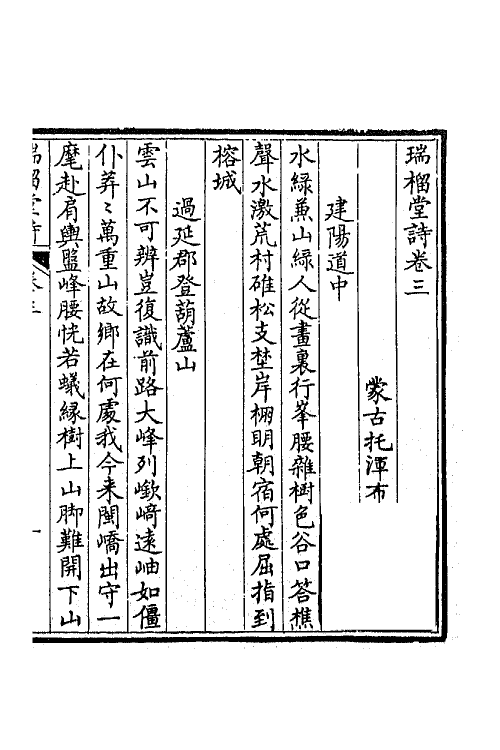 瑞榴堂詩卷三
蒙古托渾布
建陽道中
水緑蒹山緑人從畫裏行峯腰雜樹色谷口答樵
聲水激荒村碓松支埜岸棚明朝宿何處屈指到
榕城
過延郡登葫蘆山
雲山不可辨豈復識前路大峰列嶔﨑遠岫如僵
仆莽〻萬重山故鄉在何處我今来閩嶠出守一
麾赴肩輿盤峰腰恍若蟻緣樹上山脚難開下山
瑞榴堂詩 卷三 一